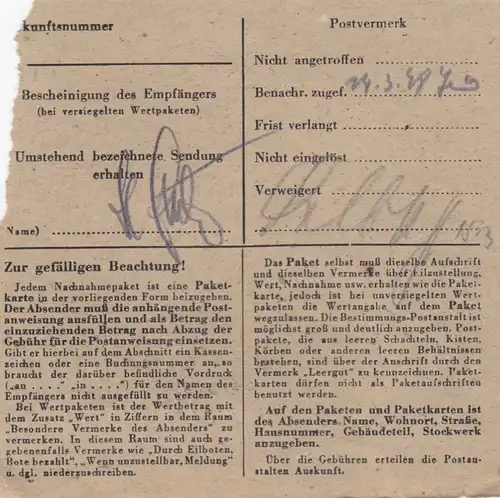 kunftsnummer
Bescheinigung des Empfängers
(bei versiegelten Wertpaketen)
Umstehend bezeichnete Sendung
erhalten
Name)
Postvermerk
Nicht angetroffen
Benachr. zugef. 24.3.48
Frist verlangt
Nicht eingelöst
Verweigert
Zur gefälligen Beachtung!
Jedem Nachnahmepaket ist eine Paket-
karte in der vorliegenden Form beizugeben.
Der Absender muß die anhängende Post-
anweisung ausfüllen und als Betrag den
einzuziehenden Betrag nach Abzug der
Gebühr für die Postanweisung einsetzen.
Gibt er hierbei auf dem Abschnitt ein Kassen-
zeichen oder eine Buchungsnummer an, so
braucht der darüber befindliche Vordruck
(„an . . . .“ „in . . . . .“) für den Namen des
Empfängers nicht ausgefüllt zu werden.
Bei Wertpaketen ist der Wertbetrag mit
dem Zusatz „Wert“ in Ziffern in dem Raum
„Besondere Vermerke des Absenders“ zu
vermerken. In diesem Raum sind auch ge-
gebenenfalls Vermerke wie „Durch Eilboten,
Bote bezahlt“, „Wenn unzustellbar, Meldung“
u. dgl. niederzuschreiben.
Das Paket selbst muß dieselbe Aufschrift
und dieselben Vermerke über Eilzustellung,
Wert, Nachnahme usw. erhalten wie die Paket-
karte, jedoch ist bei unversiegelten Wert-
paketen die Wertangabe auf dem Paket
wegzulassen. Die Bestimmungs-Postanstalt ist
möglichst groß und deutlich anzugeben. Post-
pakete, die aus leeren Schachteln, Kisten,
Körben oder anderen leeren Behältnissen
bestehen, sind über der Anschrift durch den
Vermerk „Leergut“ zu kennzeichnen. Paket-
karten dürfen nicht als Paketaufschriften
benutzt werden.
Auf den Paketen und Paketkarten ist
des Absenders Name, Wohnort, Straße,
Hausnummer, Gebäudeteil, Stockwerk
anzugeben.
Über die Gebühren erteilen die Postan-
stalten Auskunft.